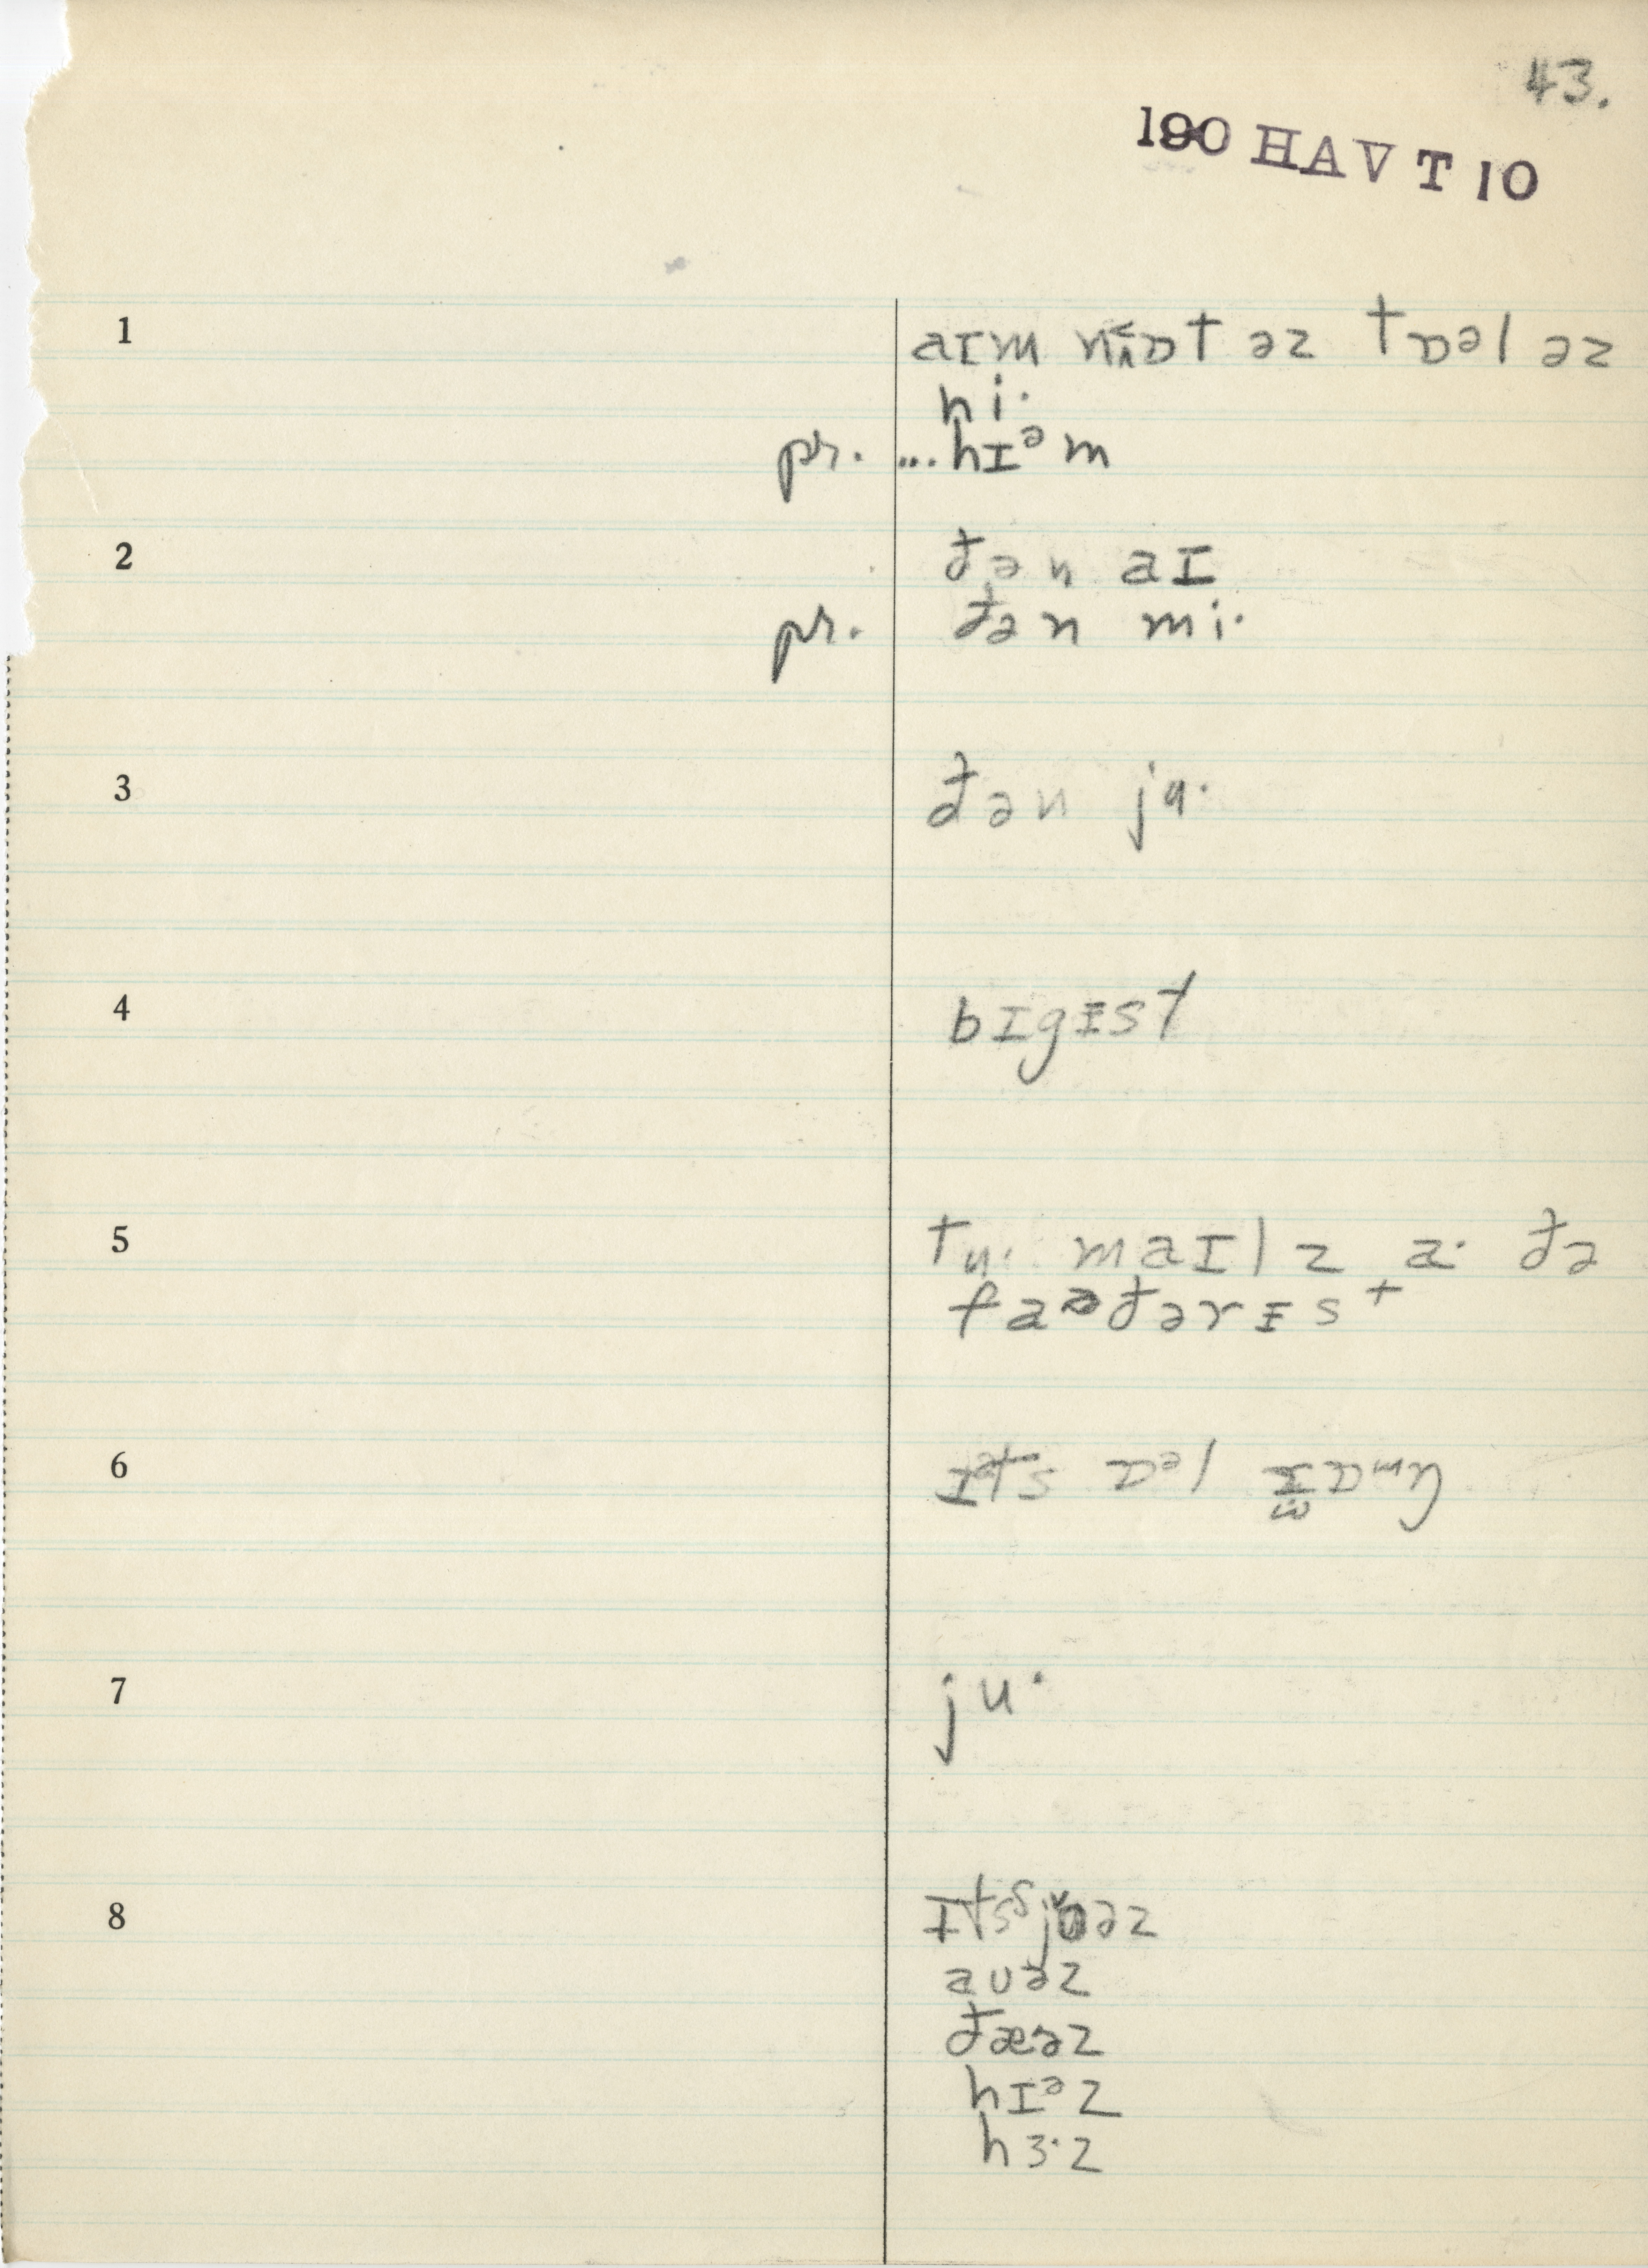 43.
190 HAVT 10
1 aɪm nɒt əz tɒəl əz
hi·
pr. ...hɪᵊm
2 ðən aɪ
pr. ðən mi·
3 ðən ju·
4 bɪgɪst
5 tu· maɪlz a· ðə
faðərɪst
6 ɒᵊl
7 ju·
8
auəz
ðæ·əz
hɪᵊz
hɜ·z